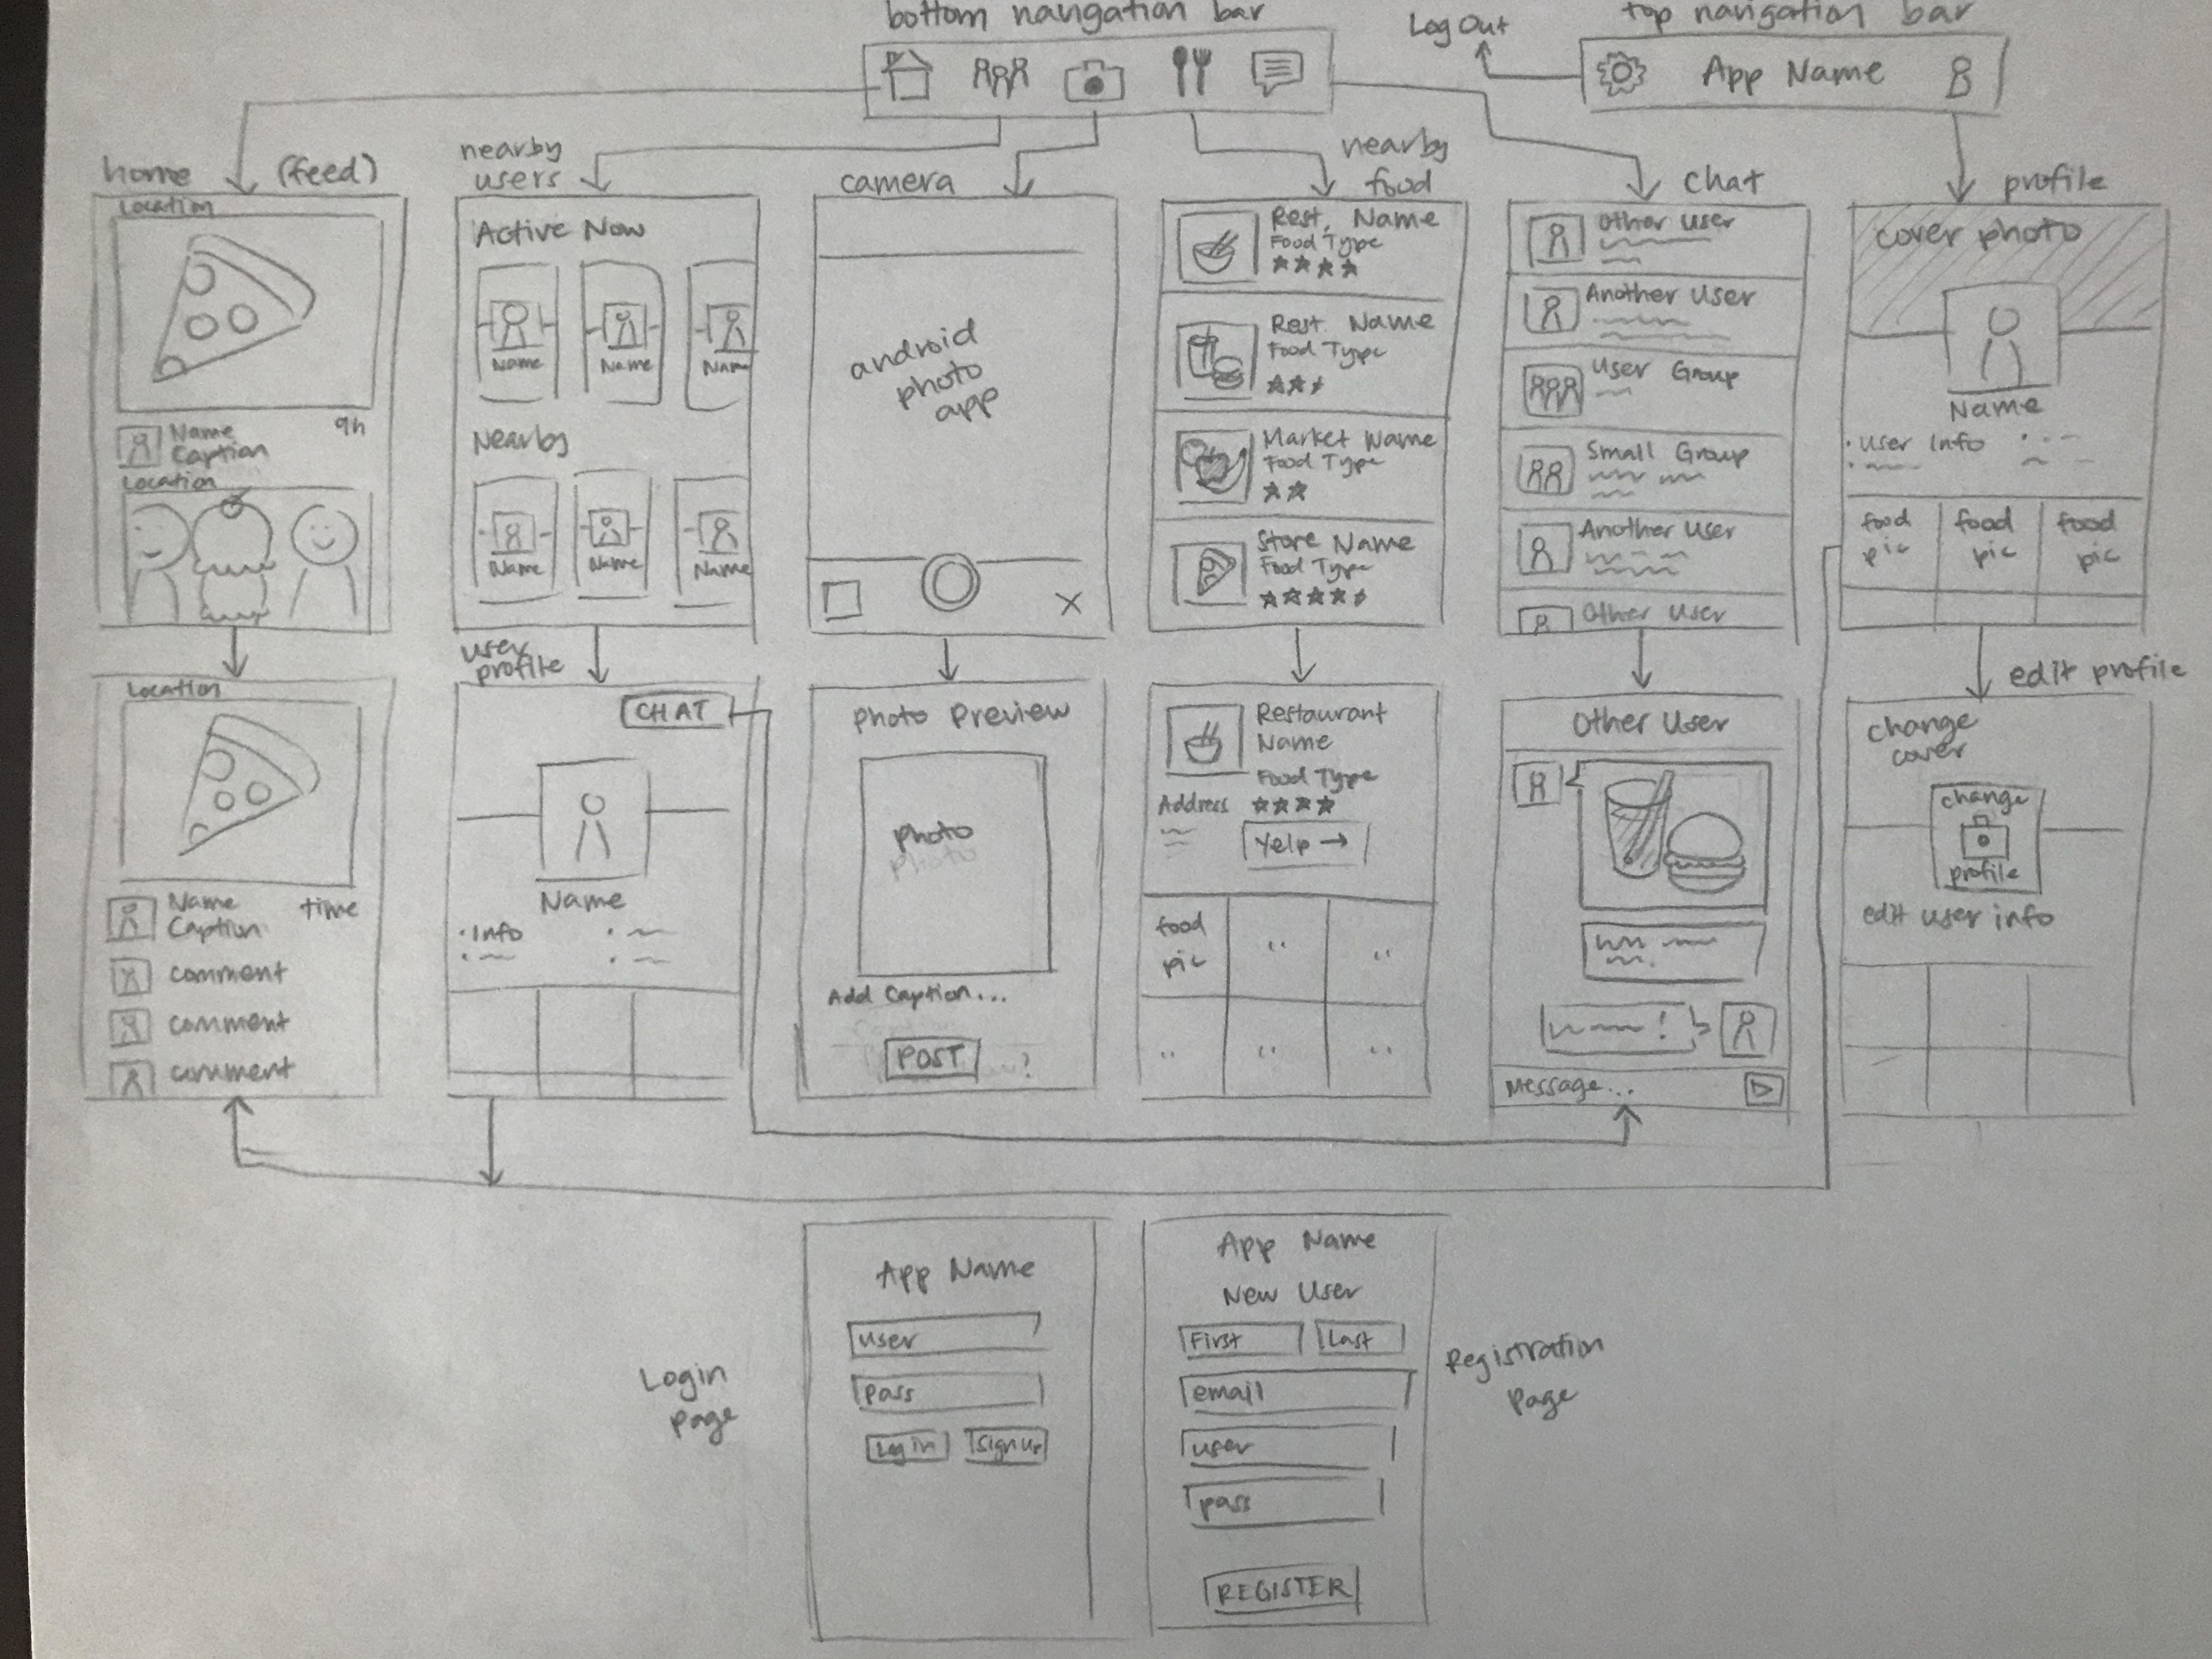 bottom navigation bar
Log Out
top navigation bar
App Name
home (feed)
Location
9h
Name
Caption
Location
nearby
users
Active Now
Name
Name
Name
Nearby
Name
Name
Name
camera
android
photo
app
nearby
food
Rest. Name
Food Type
Rest. Name
Food Type
Market Name
Food Type
Store Name
Food Type
chat
Other User
Another User
User Group
Small Group
Another User
Other User
profile
cover photo
Name
User Info
food
pic
food
pic
food
pic
Location
Name
time
Caption
comment
comment
comment
user
profile
CHAT
Name
Info
Photo Preview
photo
Add Caption...
POST
?
Restaurant
Name
Food Type
Address
Yelp →
food
pic
Other User
!
Message...
edit profile
change
cover
change
profile
edit user info
Login
page
App Name
user
pass
Log in
Sign up
App Name
New User
First
Last
email
user
pass
REGISTER
Registration
page